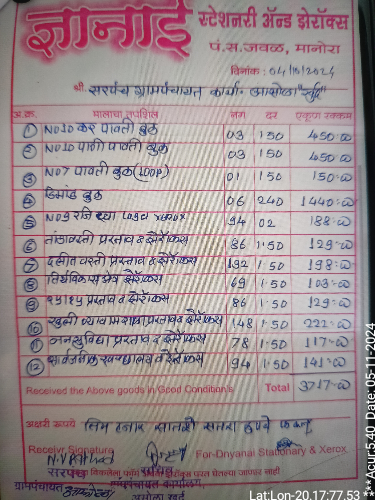 ज्ञानाई स्टेशनरी ॲन्ड झेरॉक्स
पं.स.जवळ, मानोरा
दिनांक : 04/10/2024
श्री. सरपंच ग्रामपंचायत कार्या.
अ.क्र. मालाचा तपशिल नग दर एकूण रक्कम
1 No 10 कर पावती बुक 03 150 450=00
2 No 10 पाणी पावती बुक 03 150 450=00
3 No 7 पावती बुक (100P) 01 150 150=00
4 डिमांड बुक 06 240 1440=00
5 No 9 94 02 188=00
6 तांडावस्ती प्रस्ताव व झेरॉक्स 86 1.50 129=00
7 दलीत वस्ती प्रस्ताव व झेरॉक्स 132 1.50 198=00
8 झेरॉक्स 69 1.50 103=00
9 प्रस्ताव व झेरॉक्स 86 1.50 129=00
10 खुली व्यायामशाळा प्रस्ताव व झेरॉक्स 148 1.50 222=00
11 जनसुविधा प्रस्ताव व झेरॉक्स 78 1.50 117=00
12 सार्वजनिक प्रस्ताव व झेरॉक्स 94 1.50 141=00
Received the Above goods in Good Condition's Total 3717=00
अक्षरी रुपये तिन हजार सातशे सतरा रुपये फक्त
Receivr Signatura For-Dnyanai Stationary & Xerox
सरपंच विकलेलू परत घेतल्या जाणार नाही
ग्रामपंचायत ग्रामपंचायत कार्यालय
Lat:Lon-20.17:77.53
***Acur:5.40 Date: 05-11-2024